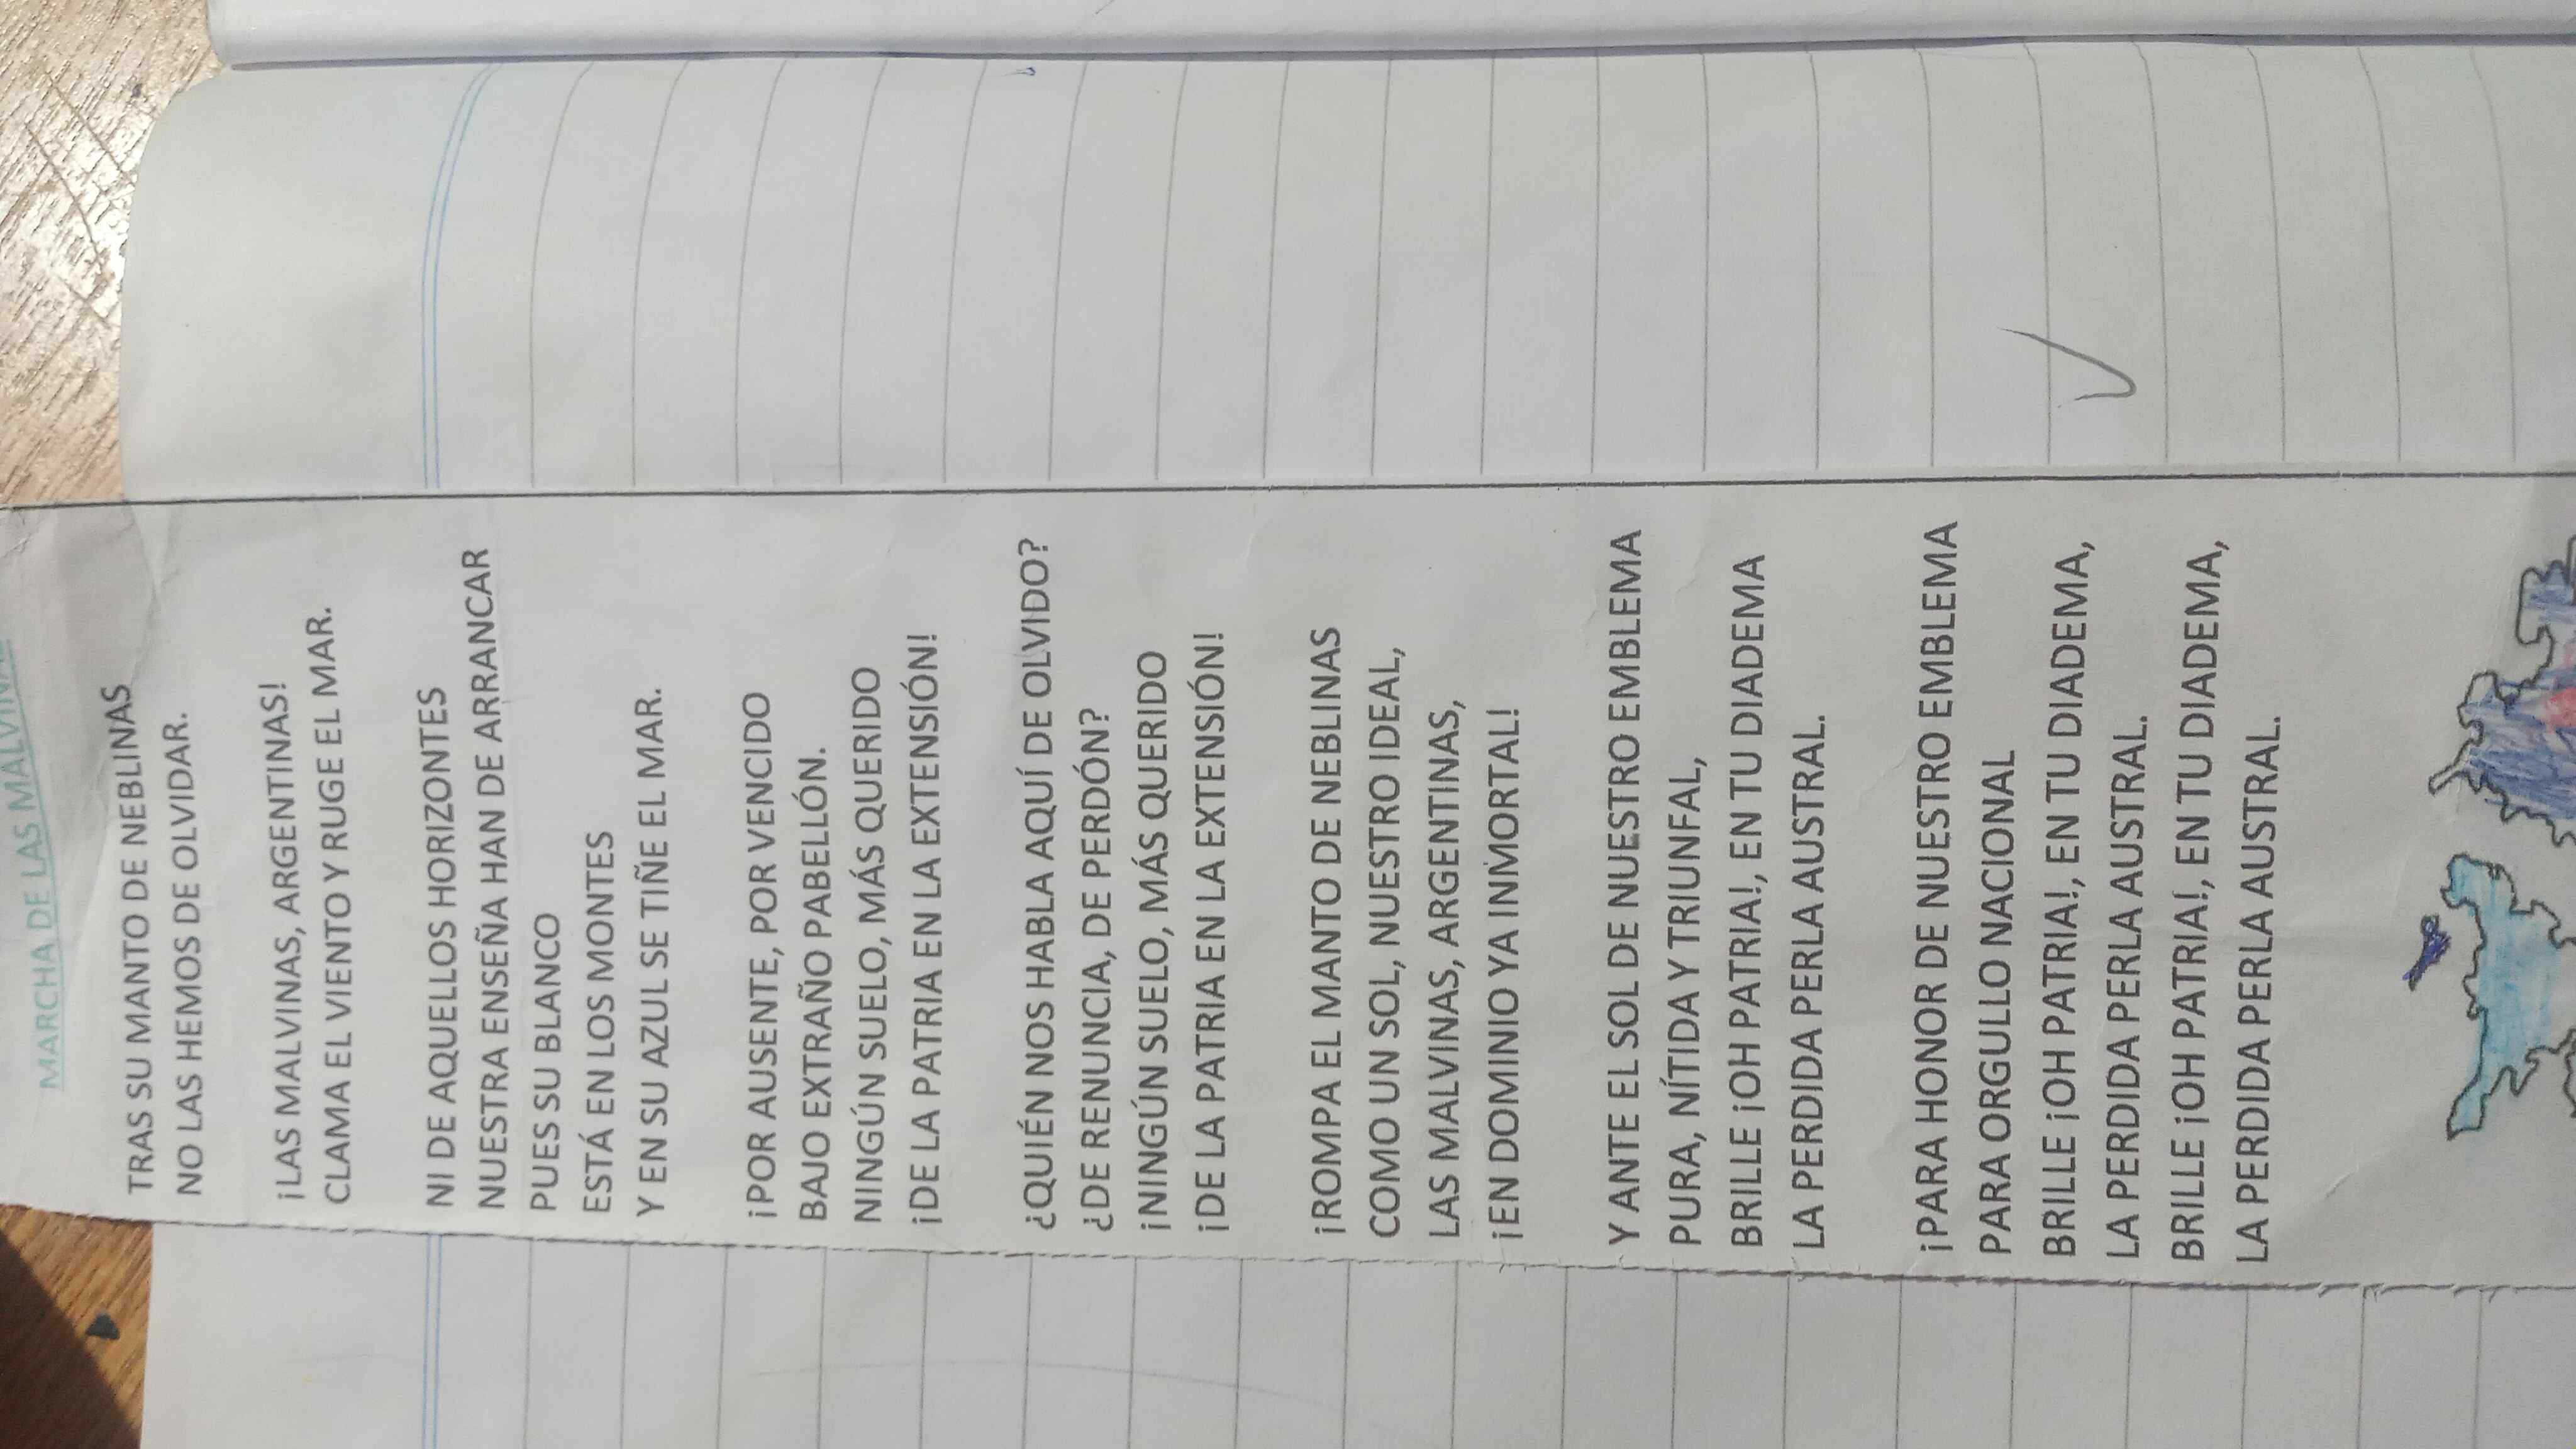 MARCHA DE LAS MALVINAS
TRAS SU MANTO DE NEBLINAS
NO LAS HEMOS DE OLVIDAR.
¡LAS MALVINAS, ARGENTINAS!
CLAMA EL VIENTO Y RUGE EL MAR.
NI DE AQUELLOS HORIZONTES
NUESTRA ENSEÑA HAN DE ARRANCAR
PUES SU BLANCO
ESTÁ EN LOS MONTES
Y EN SU AZUL SE TIÑE EL MAR.
¡POR AUSENTE, POR VENCIDO
BAJO EXTRAÑO PABELLÓN.
NINGÚN SUELO, MÁS QUERIDO
¡DE LA PATRIA EN LA EXTENSIÓN!
¿QUIÉN NOS HABLA AQUÍ DE OLVIDO?
¿DE RENUNCIA, DE PERDÓN?
¡NINGÚN SUELO, MÁS QUERIDO
¡DE LA PATRIA EN LA EXTENSIÓN!
¡ROMPA EL MANTO DE NEBLINAS
COMO UN SOL, NUESTRO IDEAL,
LAS MALVINAS, ARGENTINAS,
¡EN DOMINIO YA INMORTAL!
Y ANTE EL SOL DE NUESTRO EMBLEMA
PURA, NÍTIDA Y TRIUNFAL,
BRILLE ¡OH PATRIA!, EN TU DIADEMA
LA PERDIDA PERLA AUSTRAL.
¡PARA HONOR DE NUESTRO EMBLEMA
PARA ORGULLO NACIONAL
BRILLE ¡OH PATRIA!, EN TU DIADEMA,
LA PERDIDA PERLA AUSTRAL.
BRILLE ¡OH PATRIA!, EN TU DIADEMA,
LA PERDIDA PERLA AUSTRAL.